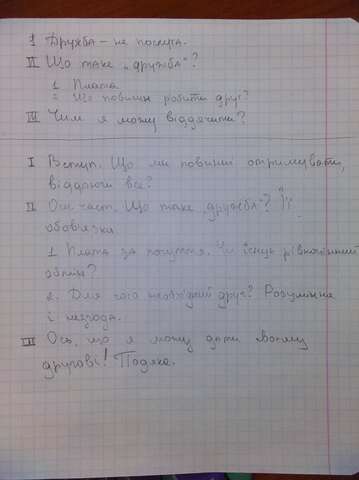 I Дружба – не послуга.
II Що таке „дружба"?
1 Плата
2 Що повинні робити друзі?
III Чим я можу віддячити?
I Вступ. Що ми повинні отримувати,
віддаючи все?
II Осн. част. Що таке „дружба"? Її
обов'язки
1. Плата за почуття. Чи існує рівноцінний
обмін?
2. Для чого необхідний друг? Розуміння
і незгода.
III Ось, що я можу дати своєму
другові! Подяка.